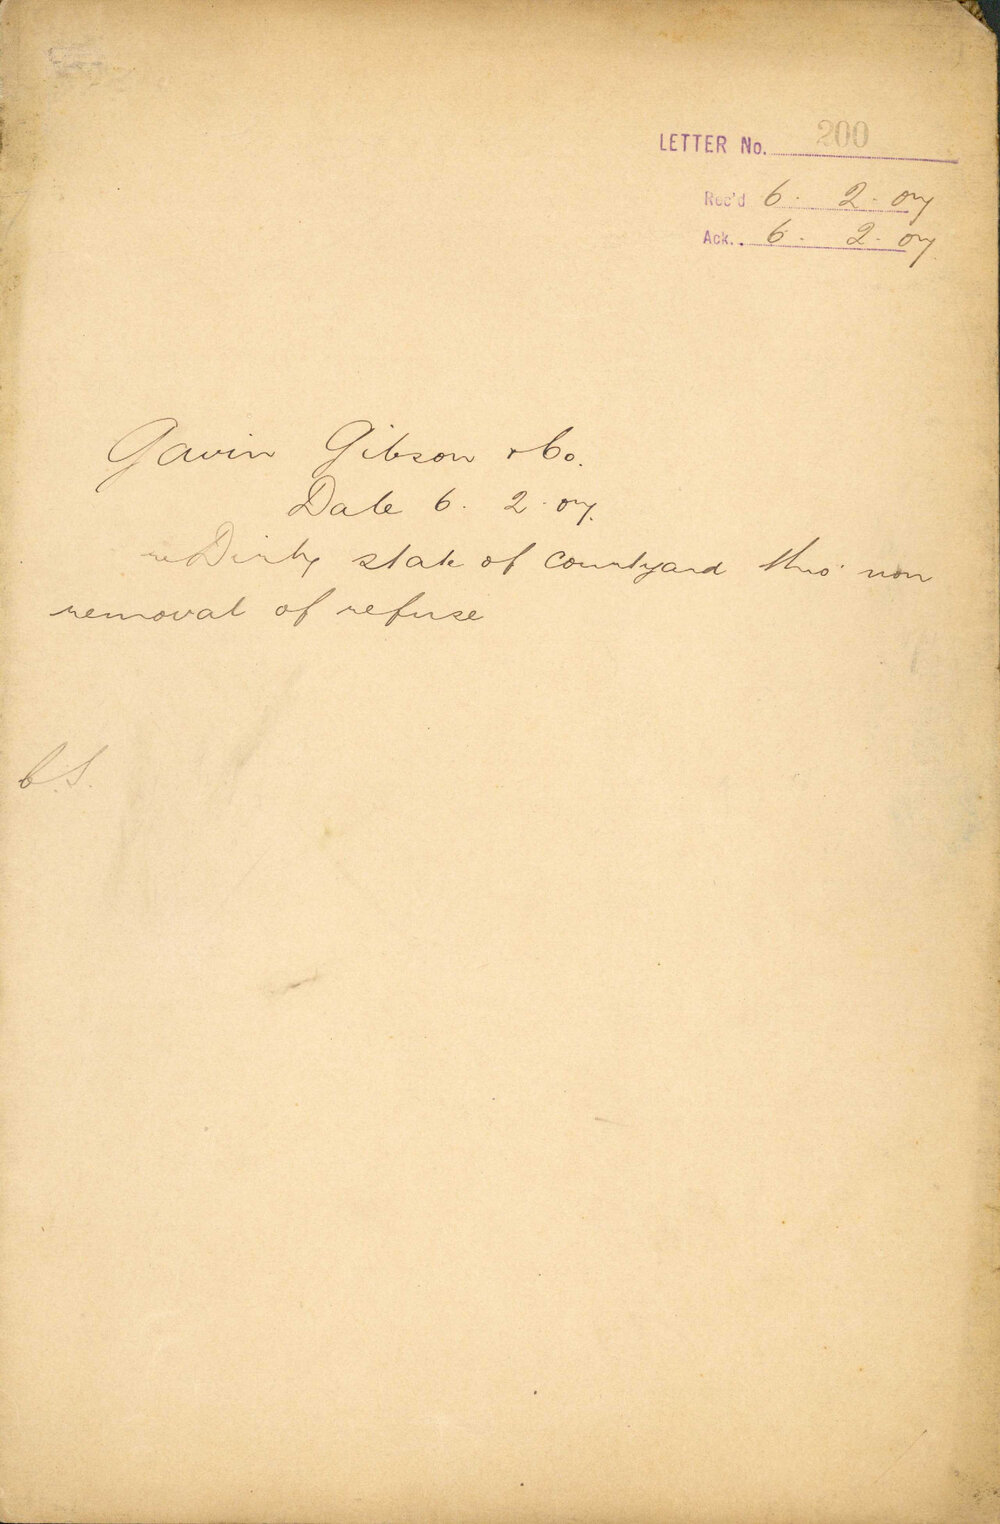 LETTER No. 200
Rec'd 6. 2. 07
Ack. . 6. 2. 07
Gavin Gibson & Co.
Date 6. 2. 07.
re Dirty state of courtyard thro' non
removal of refuse
C.S.